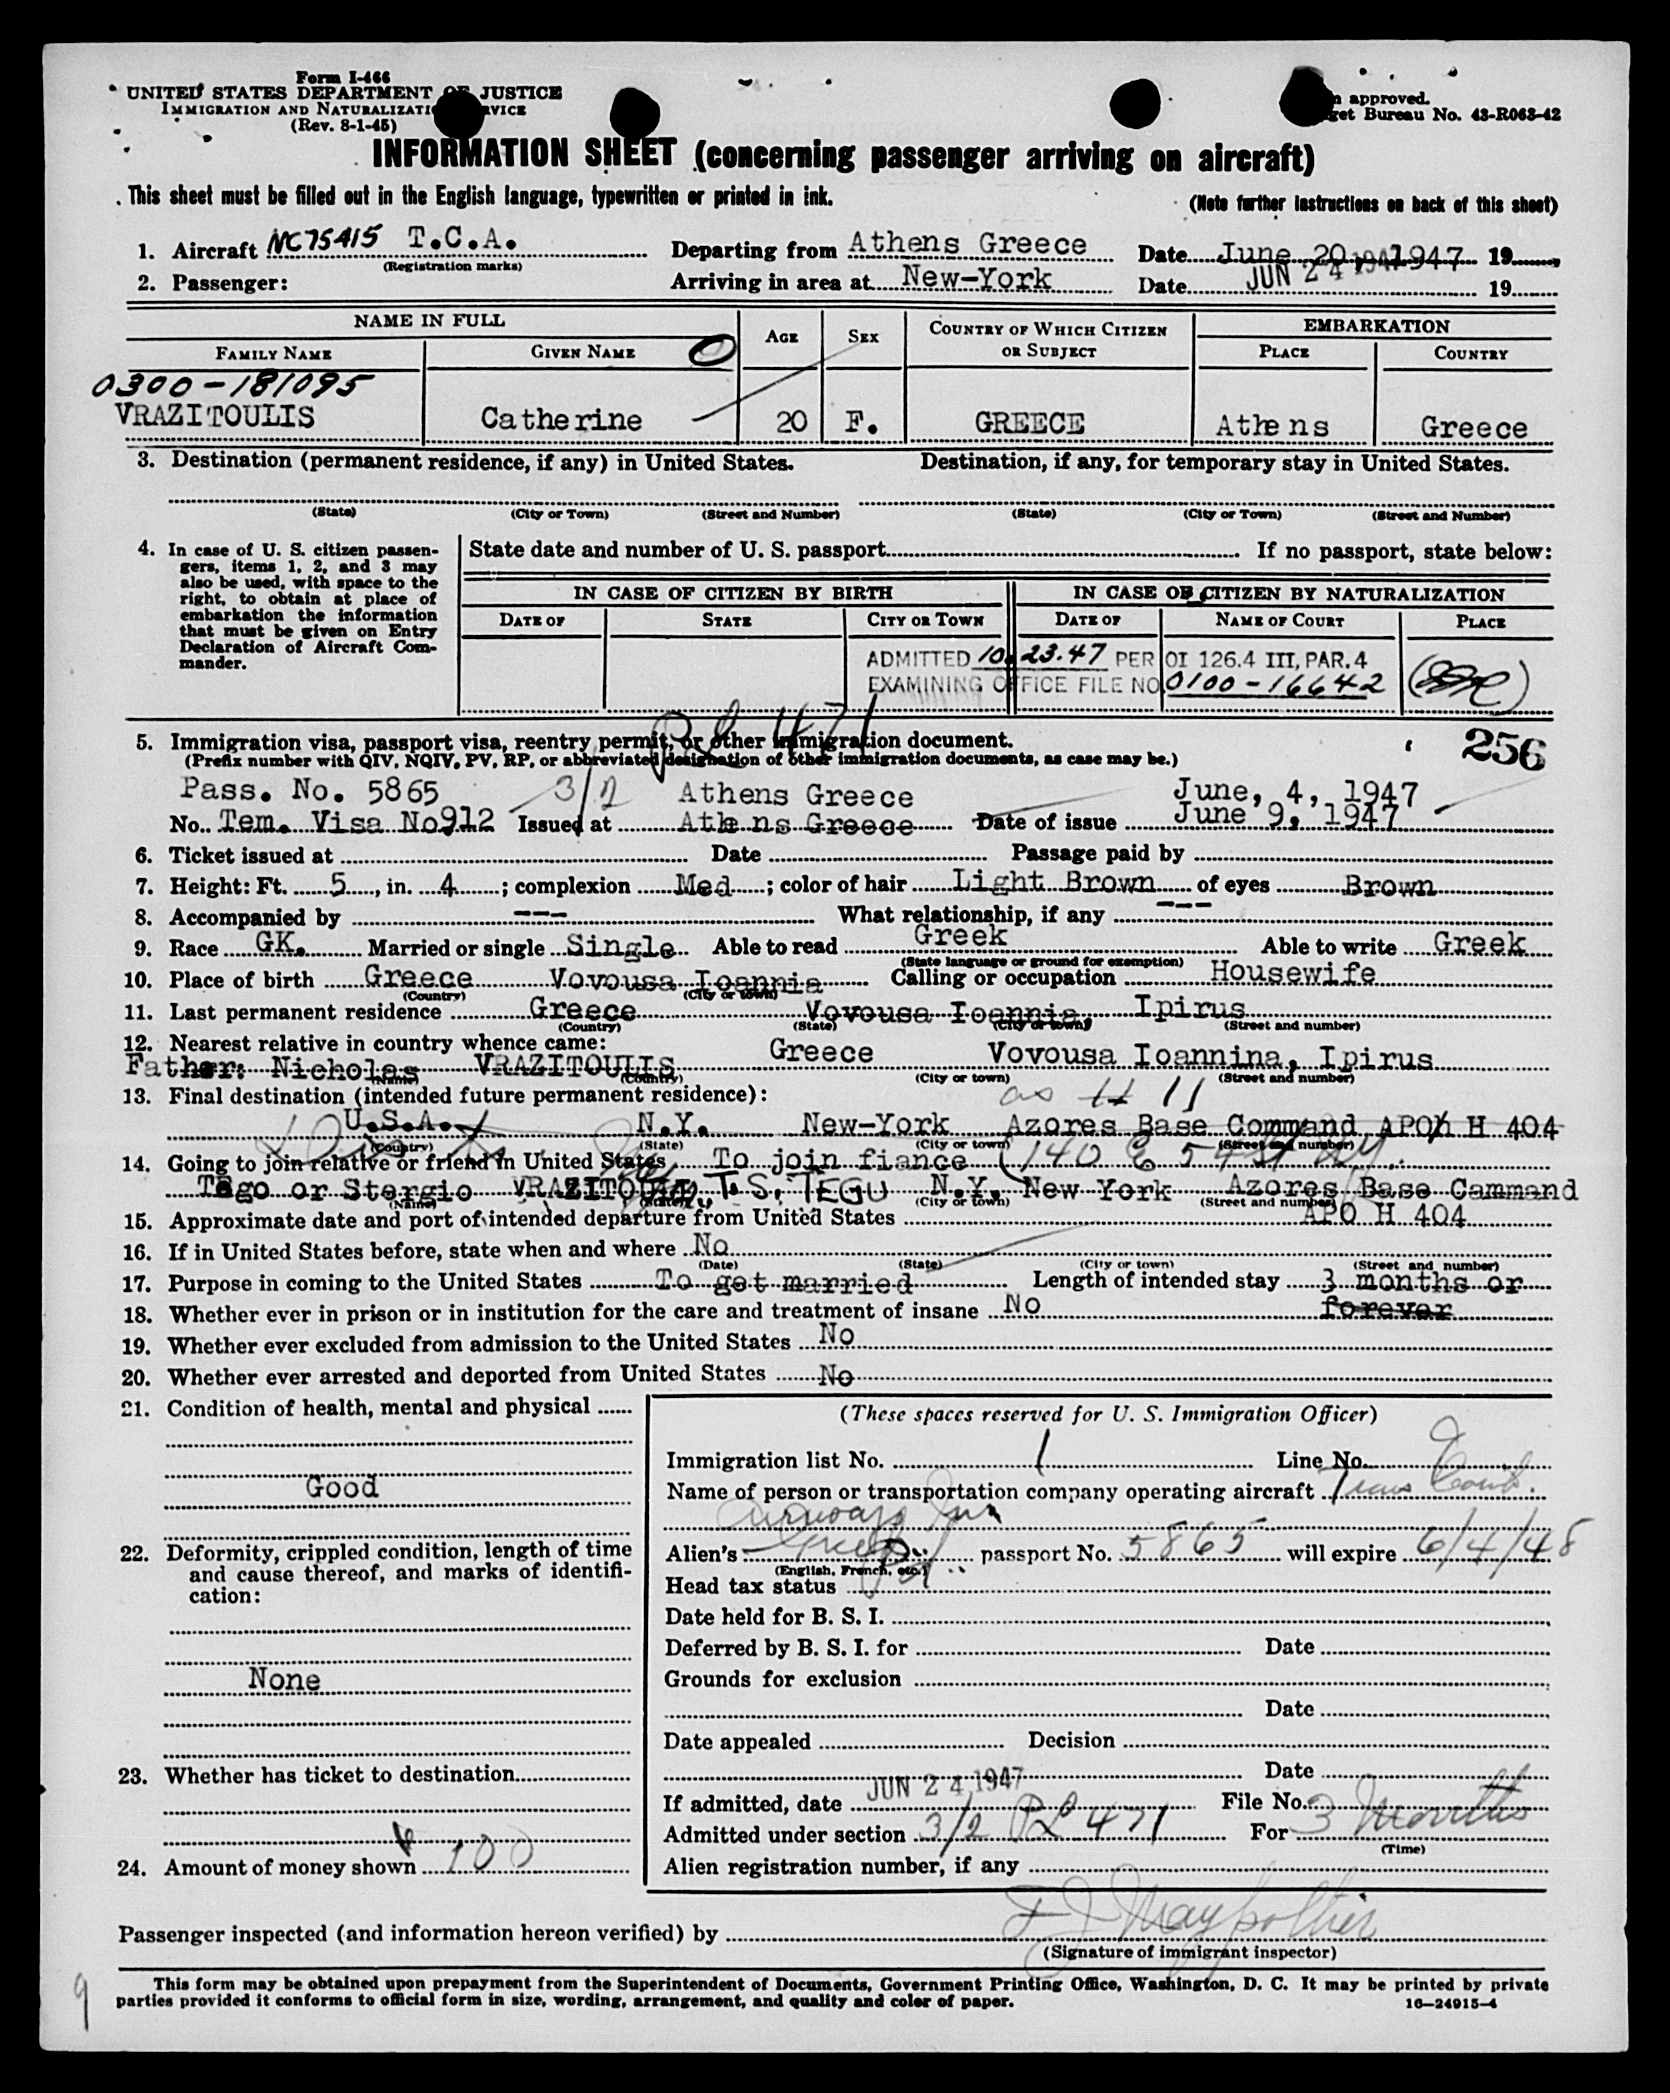 Form I-466
UNITED STATES DEPARTMENT OF JUSTICE
IMMIGRATION AND NATURALIZATION SERVICE
(Rev. 8-1-45)
approved.
get Bureau No. 43-R063-42
INFORMATION SHEET (concerning passenger arriving on aircraft)
This sheet must be filled out in the English language, typewritten or printed in ink.
(Note further instructions on back of this sheet)
1. Aircraft NC75415 T.C.A. Departing from Athens Greece Date June 20, 1947 19
(Registration marks)
2. Passenger: Arriving in area at New-York Date JUN 24 1947 19
NAME IN FULL AGE SEX COUNTRY OF WHICH CITIZEN OR SUBJECT EMBARKATION
FAMILY NAME GIVEN NAME PLACE COUNTRY
0300-181095
VRAZITOULIS Catherine 20 F. GREECE Athens Greece
3. Destination (permanent residence, if any) in United States. Destination, if any, for temporary stay in United States.
(State) (City or Town) (Street and Number) (State) (City or Town) (Street and Number)
4. In case of U. S. citizen passengers, items 1, 2, and 3 may also be used, with space to the right, to obtain at place of embarkation the information that must be given on Entry Declaration of Aircraft Commander.
State date and number of U. S. passport If no passport, state below:
IN CASE OF CITIZEN BY BIRTH IN CASE OF CITIZEN BY NATURALIZATION
DATE OF STATE CITY OR TOWN DATE OF NAME OF COURT PLACE
ADMITTED 10.23.47 PER OI 126.4 III, PAR. 4
EXAMINING OFFICE FILE NO 0100-16642
PL 471
5. Immigration visa, passport visa, reentry permit, or other immigration document. 256
(Prefix number with QIV, NQIV, PV, RP, or abbreviated designation of other immigration documents, as case may be.)
Pass. No. 5865 3/2 Athens Greece June, 4, 1947
No. Tem. Visa No912 Issued at Athens Greece Date of issue June 9, 1947
6. Ticket issued at Date Passage paid by
7. Height: Ft. 5, in. 4; complexion Med; color of hair Light Brown of eyes Brown
8. Accompanied by --- What relationship, if any ---
9. Race GK. Married or single Single Able to read Greek Able to write Greek
(State language or ground for exemption)
10. Place of birth Greece Vovousa Ioannia Calling or occupation Housewife
(Country) (City or town)
11. Last permanent residence Greece Vovousa Ioannia, Ipirus
(Country) (State) (City or town) (Street and number)
12. Nearest relative in country whence came:
Father: Nicholas VRAZITOULIS Greece Vovousa Ioannina, Ipirus
(Name) (Country) (City or town) (Street and number)
13. Final destination (intended future permanent residence): as # 11
U.S.A. N.Y. New-York Azores Base Command APO H 404
(Country) (State) (City or town) (Street and number)
14. Going to join relative or friend in United States To join fiance (140 E 54 St NY
Tego or Stergio VRAZITOULIS T.S. TEGU N.Y. New York Azores Base Cammand
(Name) (State) (City or town) (Street and number)
APO H 404
15. Approximate date and port of intended departure from United States
16. If in United States before, state when and where No
(Date) (State) (City or town) (Street and number)
17. Purpose in coming to the United States To get married Length of intended stay 3 months or
forever
18. Whether ever in prison or in institution for the care and treatment of insane No
19. Whether ever excluded from admission to the United States No
20. Whether ever arrested and deported from United States No
21. Condition of health, mental and physical
Good
22. Deformity, crippled condition, length of time and cause thereof, and marks of identification:
None
23. Whether has ticket to destination
24. Amount of money shown 100
(These spaces reserved for U. S. Immigration Officer)
Immigration list No. 1 Line No.
Name of person or transportation company operating aircraft Trans Cont.
Airways Inc
Alien's Greek passport No. 5865 will expire 6/4/48
(English, French, etc.)
Head tax status
Date held for B. S. I.
Deferred by B. S. I. for Date
Grounds for exclusion
Date
Date appealed Decision
Date
If admitted, date JUN 24 1947 File No.
Admitted under section 3/2 PL 471 For 3 Months
(Time)
Alien registration number, if any
Passenger inspected (and information hereon verified) by
(Signature of immigrant inspector)
This form may be obtained upon prepayment from the Superintendent of Documents, Government Printing Office, Washington, D. C. It may be printed by private
parties provided it conforms to official form in size, wording, arrangement, and quality and color of paper. 16—24915-4
9